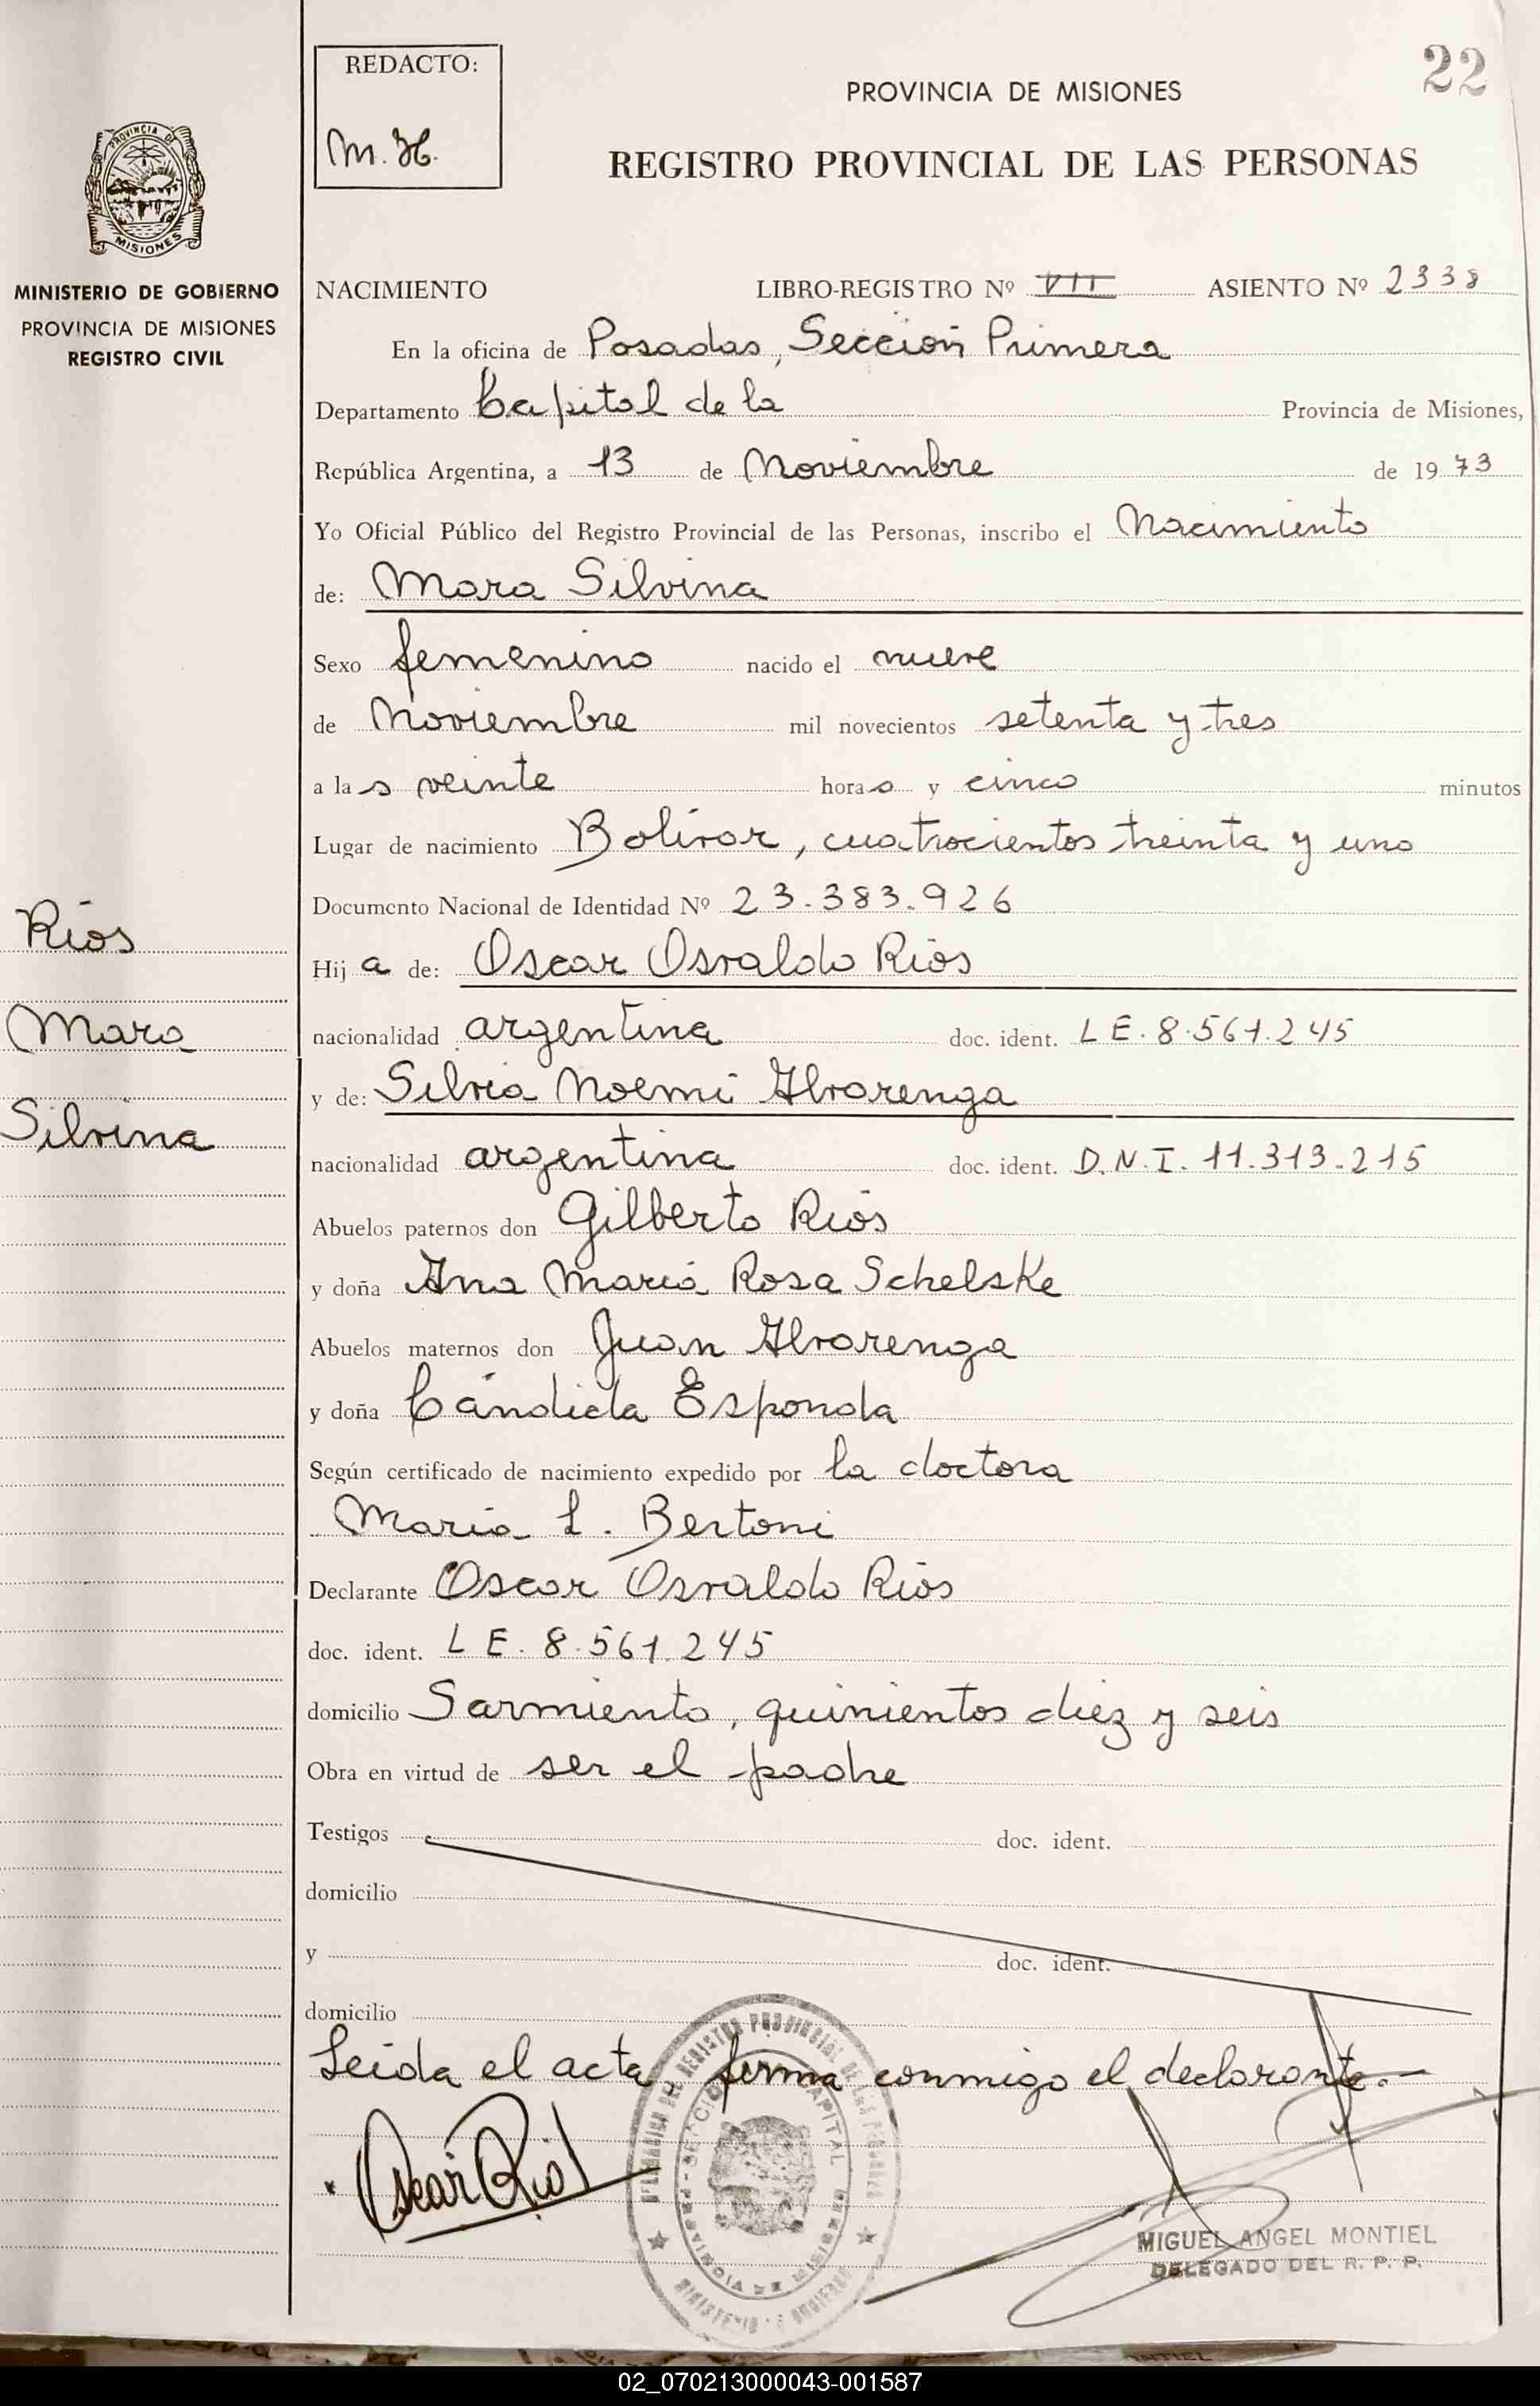 REDACTO:
M. H.
22
PROVINCIA DE MISIONES
REGISTRO PROVINCIAL DE LAS PERSONAS
PROVINCIA DE
MISIONES
MINISTERIO DE GOBIERNO
PROVINCIA DE MISIONES
REGISTRO CIVIL
NACIMIENTO LIBRO-REGISTRO Nº VII ASIENTO Nº 2338
En la oficina de Posadas, Sección Primera
Departamento Capital de la Provincia de Misiones,
República Argentina, a 13 de Noviembre de 1973
Yo Oficial Público del Registro Provincial de las Personas, inscribo el Nacimiento
de: Mara Silvina
Sexo femenino nacido el nueve
de Noviembre mil novecientos setenta y tres
a las veinte horas y cinco minutos
Lugar de nacimiento Bolívar, cuatrocientos treinta y uno
Documento Nacional de Identidad Nº 23.383.926
Ríos
Mara
Silvina
Hija de: Oscar Osvaldo Ríos
nacionalidad argentina doc. ident. L E. 8.561.245
y de: Silvia Noemí Alvarenga
nacionalidad argentina doc. ident. D.N.I. 11.313.215
Abuelos paternos don Gilberto Ríos
y doña Ana María Rosa Schelske
Abuelos maternos don Juan Alvarenga
y doña Cándida Esponda
Según certificado de nacimiento expedido por la doctora
María L. Bertoni
Declarante Oscar Osvaldo Ríos
doc. ident. L E. 8.561.245
domicilio Sarmiento, quinientos diez y seis
Obra en virtud de ser el padre
Testigos doc. ident.
domicilio
y doc. ident.
domicilio
Leída el acta firma conmigo el declarante.-
Oscar Rios
MIGUEL ANGEL MONTIEL
DELEGADO DEL R. P. P.
02_070213000043-001587